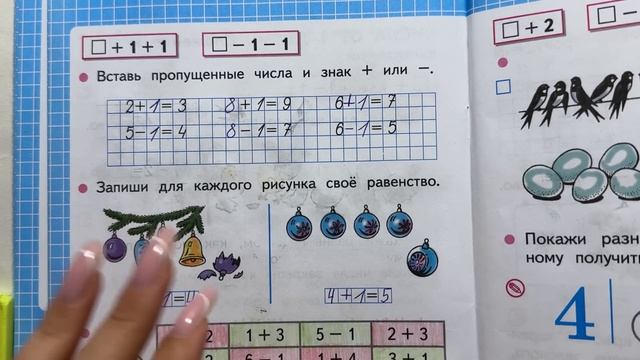 □ + 1 + 1 □ − 1 − 1
Вставь пропущенные числа и знак + или −.
2+1=3 8+1=9 6+1=7
5−1=4 8−1=7 6−1=5
Запиши для каждого рисунка своё равенство.
1=4 4+1=5
2 1+3 5−1 2+3
1+4 3+1
□ + 2 □ −
Покажи
ному получить
4